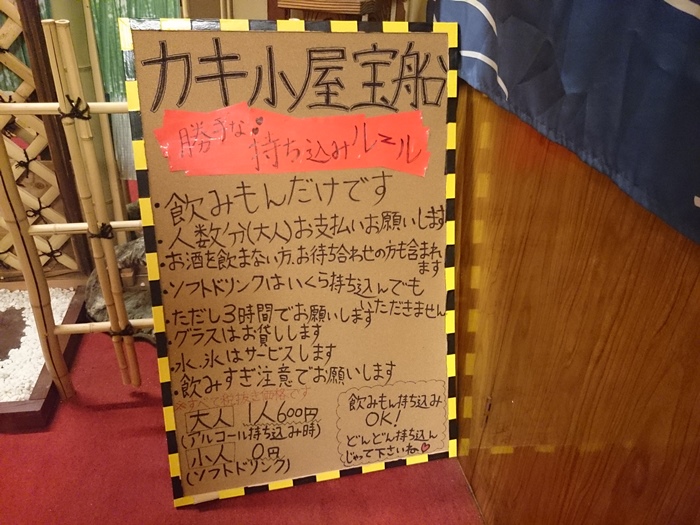 カキ小屋宝船
勝手な
持ち込みルール
・飲みもんだけです
・人数分(大人)お支払いお願いします
・お酒を飲まない方、お待ち合わせの方も含まれ
ます
・ソフトドリンクはいくら持ち込んでも
いただきません
・ただし3時間でお願いします
・グラスはお貸しします
・水、氷はサービスします
・飲みすぎ注意でお願いします
※すべて税抜き価格です
大人 1人600円
(アルコール持ち込み時)
小人 0円
(ソフトドリンク)
飲みもん持ち込み
OK!
どんどん持ち込ん
じゃって下さいね♡